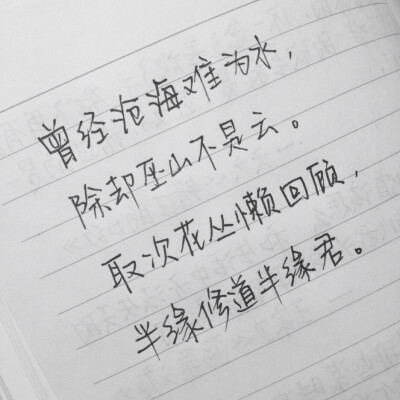 曾经沧海难为水，
除却巫山不是云。
取次花丛懒回顾，
半缘修道半缘君。